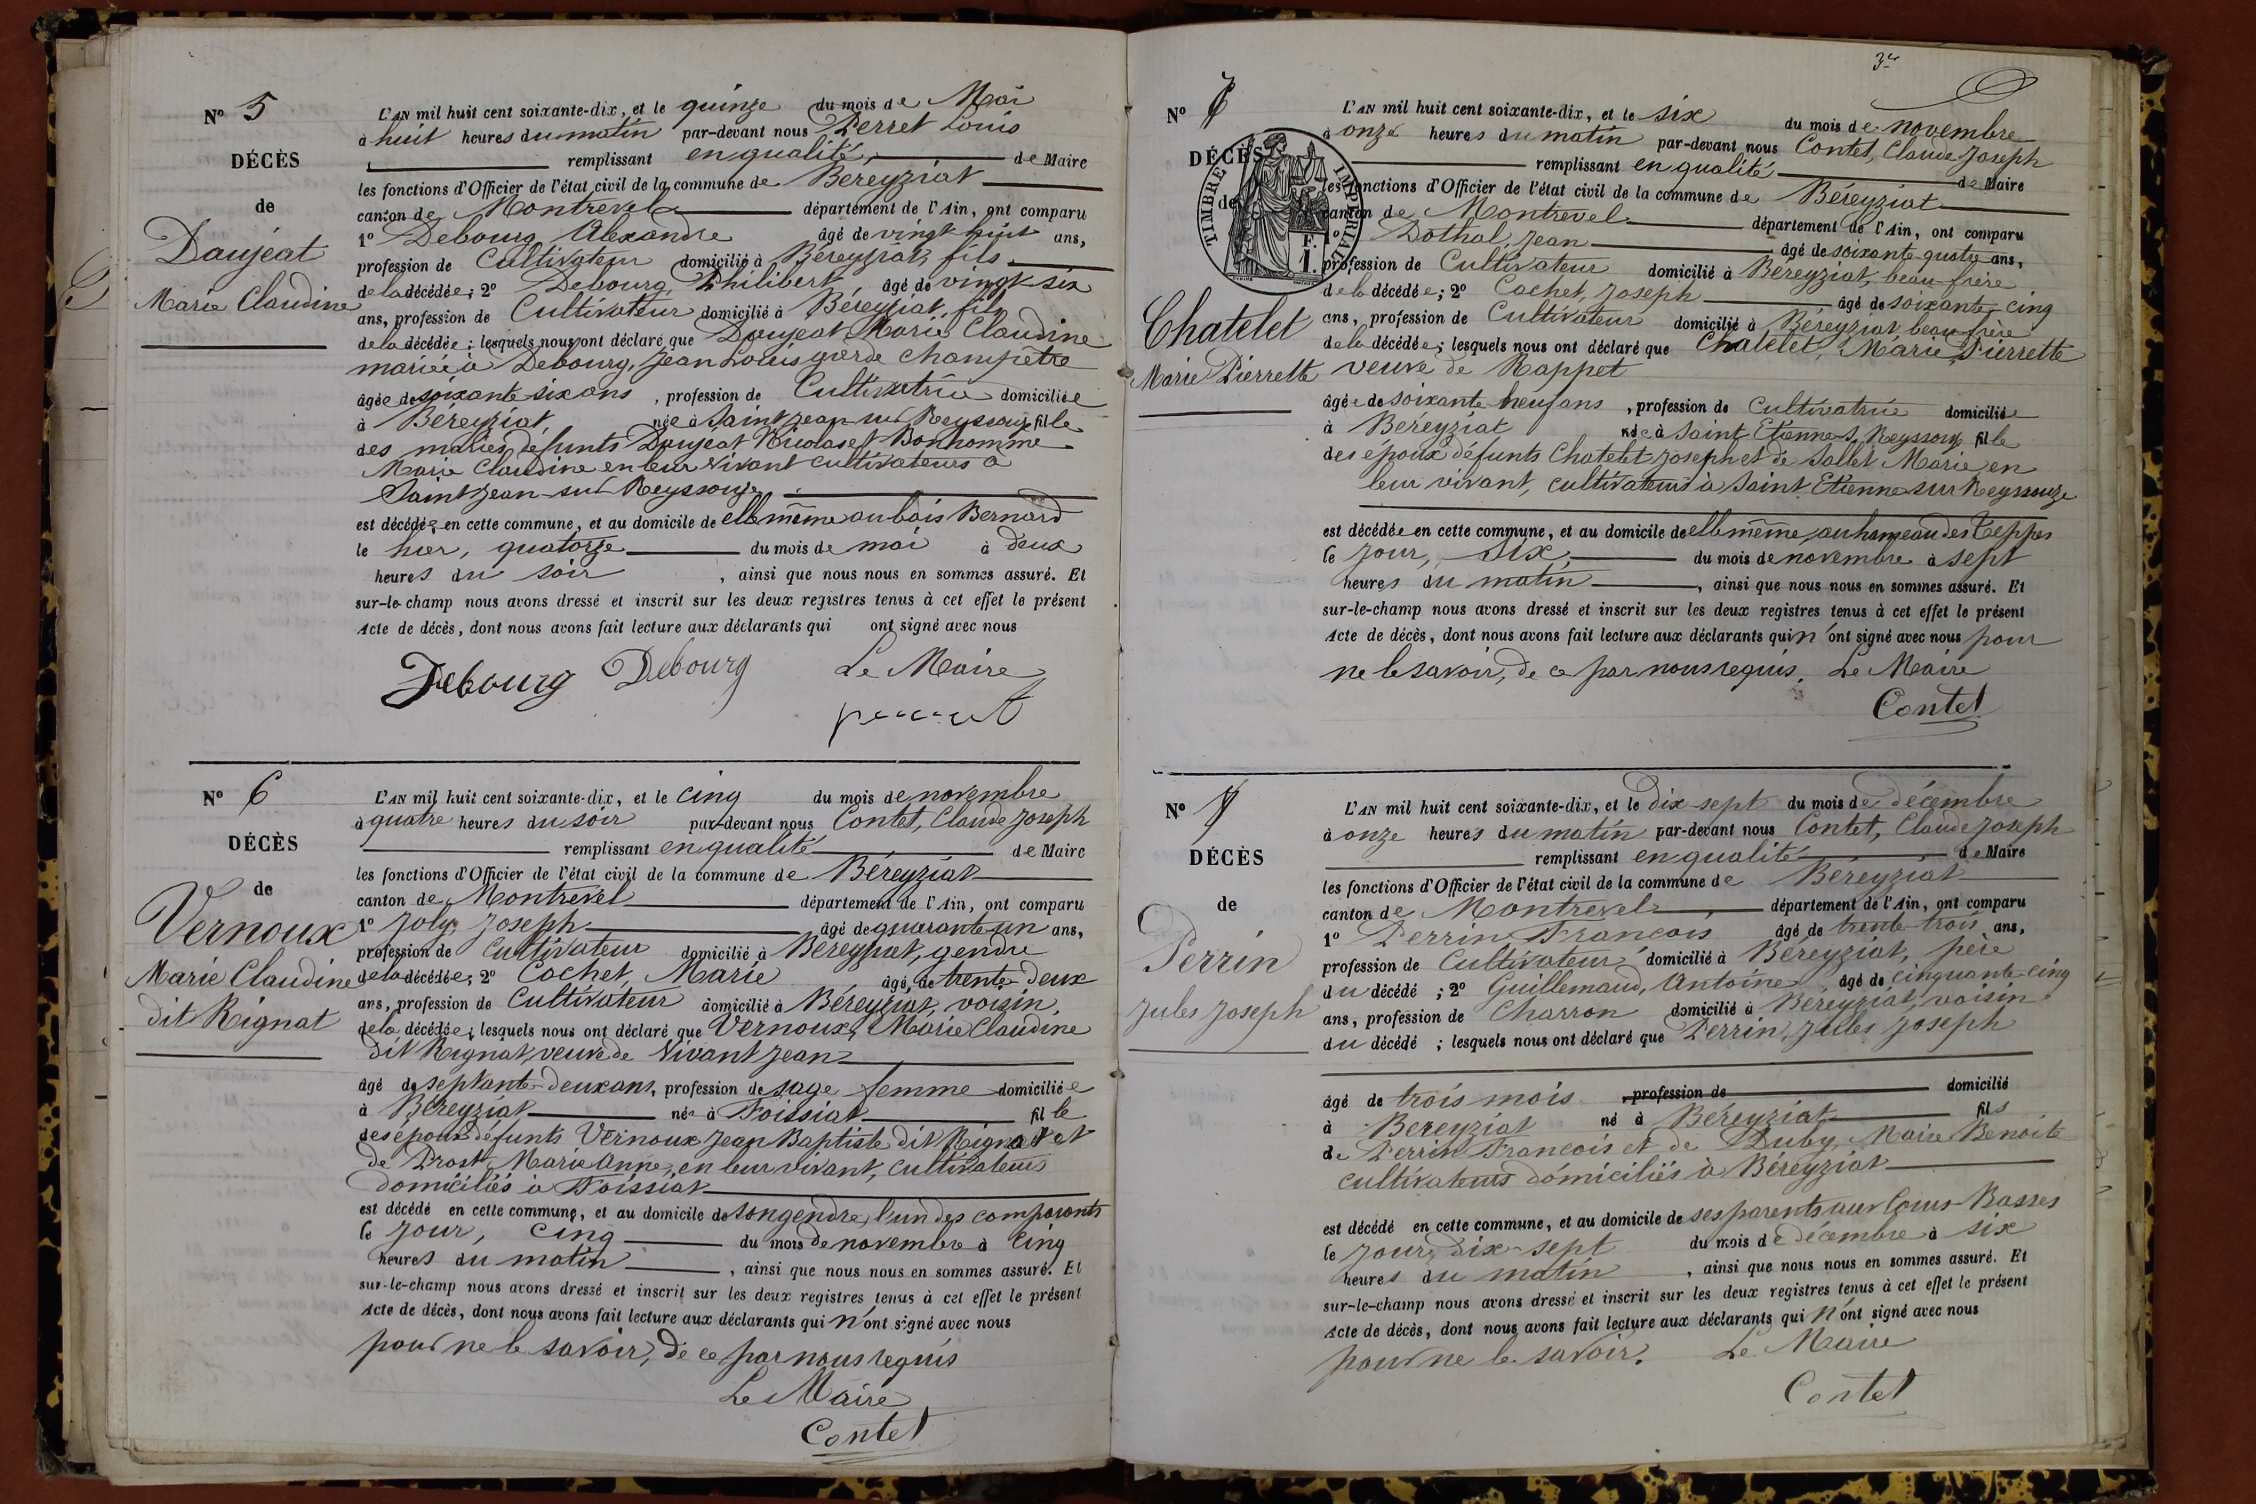 Nº 5
DÉCÈS
de
Daujeat
Marie Claudine
L'AN mil huit cent soixante-dix, et le quinze du mois de Mai
à huit heures du matin par-devant nous Perret Louis
remplissant en qualité de Maire
les fonctions d'Officier de l'état civil de la commune de Béreyziat
canton de Montrevel département de l'Ain, ont comparu
1º Debourg Alexandre âgé de vingt huit ans,
profession de Cultivateur domicilié à Béreyziat, fils
de la décédée; 2º Debourg Philibert âgé de vingt-six
ans, profession de Cultivateur domicilié à Béreyziat, fils
de la décédée; lesquels nous ont déclaré que Daujeat Marie Claudine
mariée à Debourg, Jean Louis garde champêtre
âgée de soixante six ans, profession de Cultivatrice domiciliée
à Béreyziat née à Saint Jean sur Reyssouze fille
des mariés défunts Daujeat Nicolas et Bonhomme
Marie Claudine en leur vivant cultivateurs à
Saint Jean sur Reyssouze
est décédée en cette commune, et au domicile de elle même au bois Bernard
le hier, quatorze du mois de mai à deux
heures du soir, ainsi que nous nous en sommes assuré. Et
sur-le-champ nous avons dressé et inscrit sur les deux registres tenus à cet effet le présent
Acte de décès, dont nous avons fait lecture aux déclarants qui ont signé avec nous
Debourg Debourg Le Maire
perret
Nº 6
DÉCÈS
de
Vernoux
Marie Claudine
dit Rignat
L'AN mil huit cent soixante-dix, et le cinq du mois de novembre
à quatre heures du soir par-devant nous Contet, Claude Joseph
remplissant en qualité de Maire
les fonctions d'Officier de l'état civil de la commune de Béreyziat
canton de Montrevel département de l'Ain, ont comparu
1º Joly, Joseph âgé de quarante un ans,
profession de Cultivateur domicilié à Béreyziat, gendre
de la décédée; 2º Cochet, Marie âgé de trente-deux
ans, profession de Cultivateur domicilié à Béreyziat, voisin,
de la décédée; lesquels nous ont déclaré que Vernoux, Marie Claudine
dit Rignat, veuve de Vivant Jean
âgé de septante-deux ans, profession de sage femme domiciliée
à Béreyziat née à Foissiat fille
des époux défunts Vernoux Jean Baptiste dit Rignat et
de Prost Marie Anne, en leur vivant, cultivateurs
domiciliés à Foissiat
est décédé en cette commune, et au domicile de son gendre, l'un des comparants
le jour, cinq du mois de novembre à cinq
heures du matin, ainsi que nous nous en sommes assuré. Et
sur-le-champ nous avons dressé et inscrit sur les deux registres tenus à cet effet le présent
Acte de décès, dont nous avons fait lecture aux déclarants qui n'ont signé avec nous
pour ne le savoir, de ce par nous requis
Le Maire
Contet
Nº 7
DÉCÈS
de
TIMBRE IMPÉRIAL
F.
1.
Chatelet
Marie Pierrette
L'AN mil huit cent soixante-dix, et le six du mois de novembre
à onze heures du matin par-devant nous Contet, Claude Joseph
remplissant en qualité de Maire
les fonctions d'Officier de l'état civil de la commune de Béreyziat
canton de Montrevel département de l'Ain, ont comparu
1º Dothal, Jean âgé de soixante-quatre ans,
profession de Cultivateur domicilié à Béreyziat, beau-frère
de la décédée; 2º Cochet, Joseph âgé de soixante-cinq
ans, profession de Cultivateur domicilié à Béreyziat, beau-frère
de la décédée; lesquels nous ont déclaré que Chatelet, Marie Pierrette
veuve de Rappet
âgée de soixante neuf ans, profession de cultivatrice domiciliée
à Béreyziat née à Saint Etienne s. Reyssouze fille
des époux défunts Chatelet Joseph et de Sallet Marie en
leur vivant, cultivateurs à Saint Etienne sur Reyssouze
est décédée en cette commune, et au domicile de elle même, au hameau des Teppes
le jour, six, du mois de novembre à sept
heures du matin, ainsi que nous nous en sommes assuré. Et
sur-le-champ nous avons dressé et inscrit sur les deux registres tenus à cet effet le présent
Acte de décès, dont nous avons fait lecture aux déclarants qui n'ont signé avec nous pour
ne le savoir, de ce par nous requis. Le Maire
Contet
Nº
DÉCÈS
de
Perrin
Jules Joseph
L'AN mil huit cent soixante-dix, et le dix sept du mois de décembre
à onze heures du matin par-devant nous Contet, Claude Joseph
remplissant en qualité de Maire
les fonctions d'Officier de l'état civil de la commune de Béreyziat
canton de Montrevel, département de l'Ain, ont comparu
1º Perrin Francois âgé de trente-trois ans,
profession de Cultivateur domicilié à Béreyziat, père
du décédé; 2º Guillemaud, Antoine âgé de cinquante-cinq
ans, profession de Charron domicilié à Béreyziat, voisin
du décédé; lesquels nous ont déclaré que Perrin, Jules Joseph
âgé de trois mois profession de domicilié
à Béreyziat né à Béreyziat fils
de Perrin Francois et de Duby, Marie Benoite
cultivateurs domiciliés à Béreyziat
est décédé en cette commune, et au domicile de ses parents aux Cours-Basses
le jour, dix-sept du mois de décembre à six
heures du matin, ainsi que nous nous en sommes assuré. Et
sur-le-champ nous avons dressé et inscrit sur les deux registres tenus à cet effet le présent
Acte de décès, dont nous avons fait lecture aux déclarants qui n'ont signé avec nous
pour ne le savoir. Le Maire
Contet